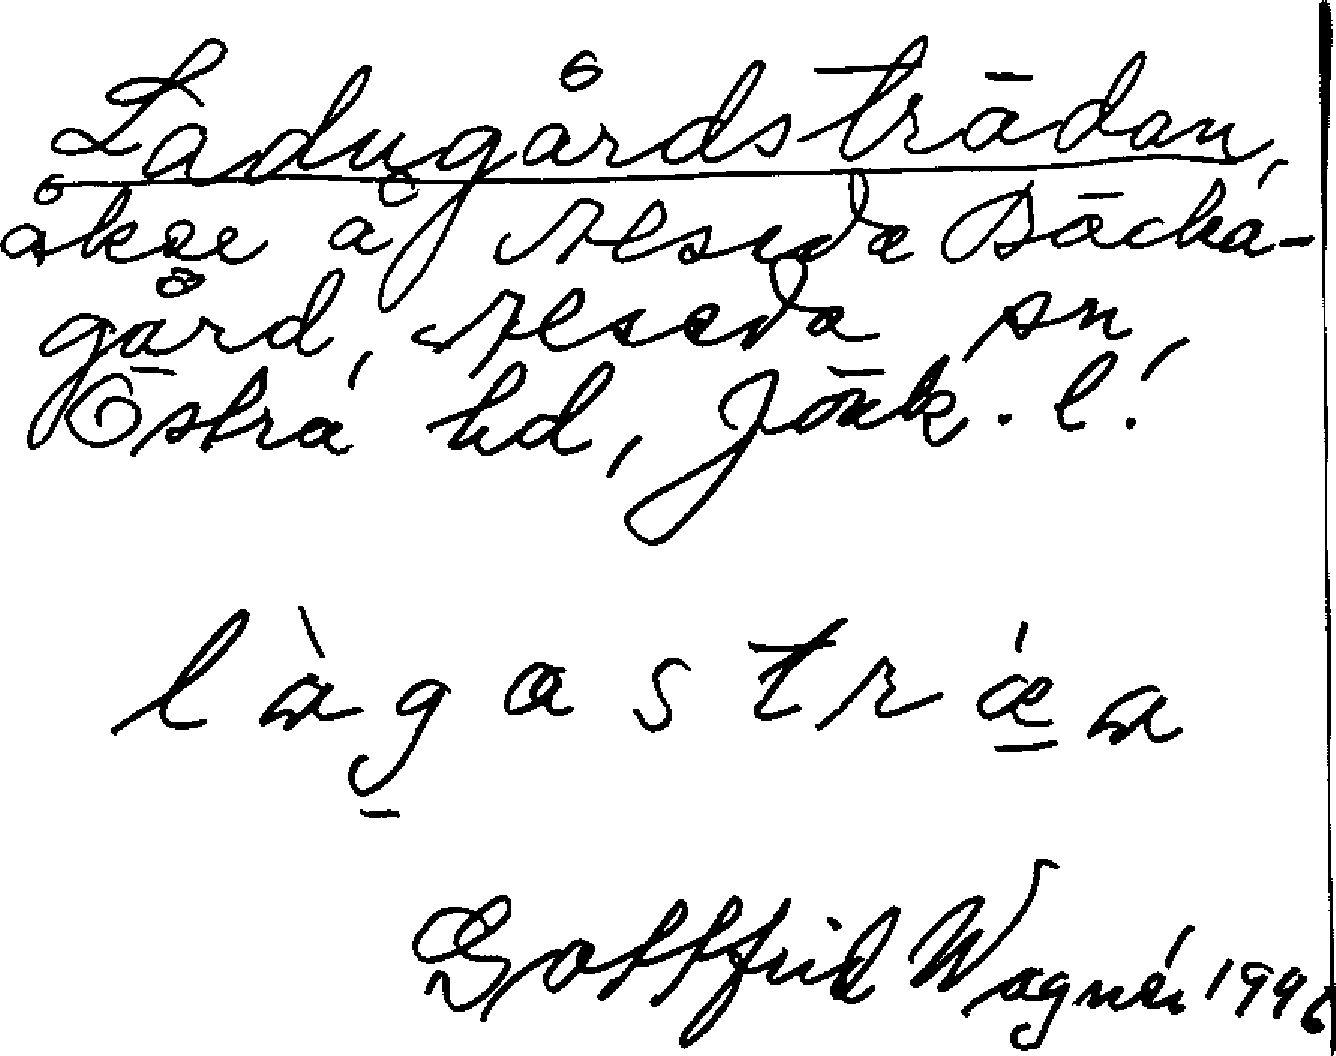 Ladugårdsträdan,
åker å Näseda Bäcka-
gård, Näseda sn,
Östra hd, Jönk. l.
làgastrǽa
Gottfrid Wagnér 1996